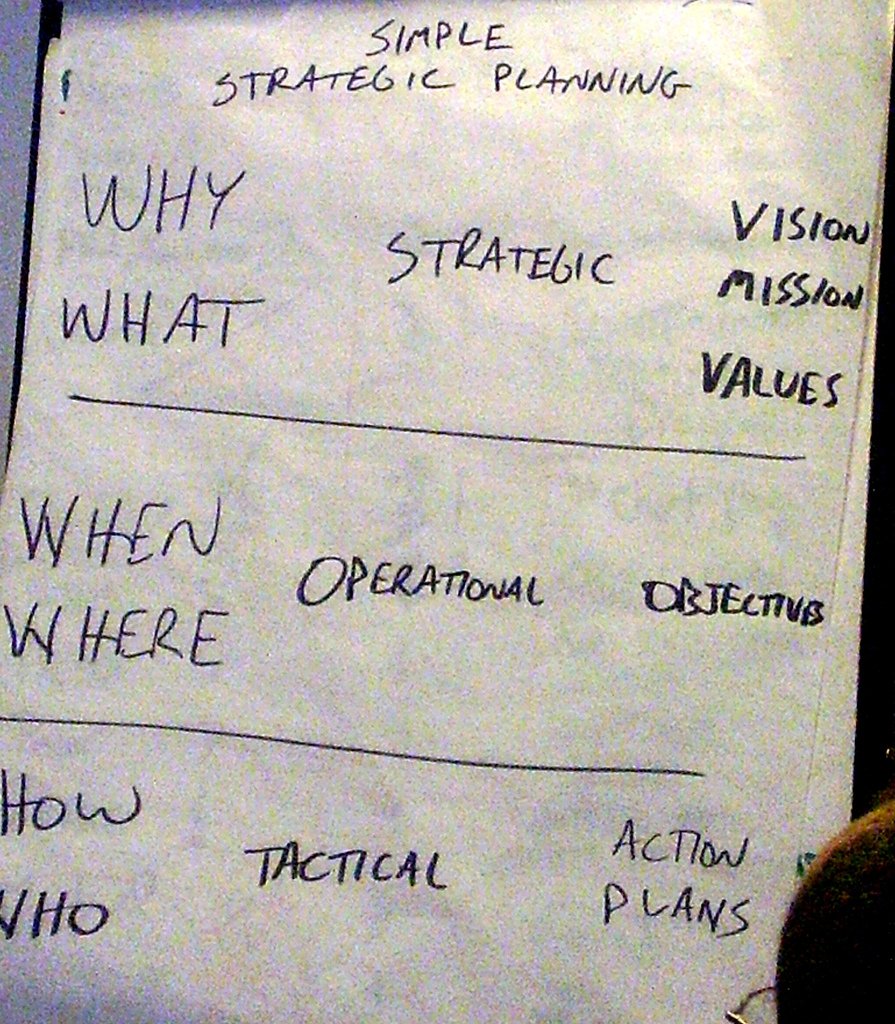 SIMPLE
STRATEGIC PLANNING
WHY
WHAT
STRATEGIC
VISION
MISSION
VALUES
WHEN
WHERE
OPERATIONAL
OBJECTIVES
HOW
WHO
TACTICAL
ACTION
PLANS